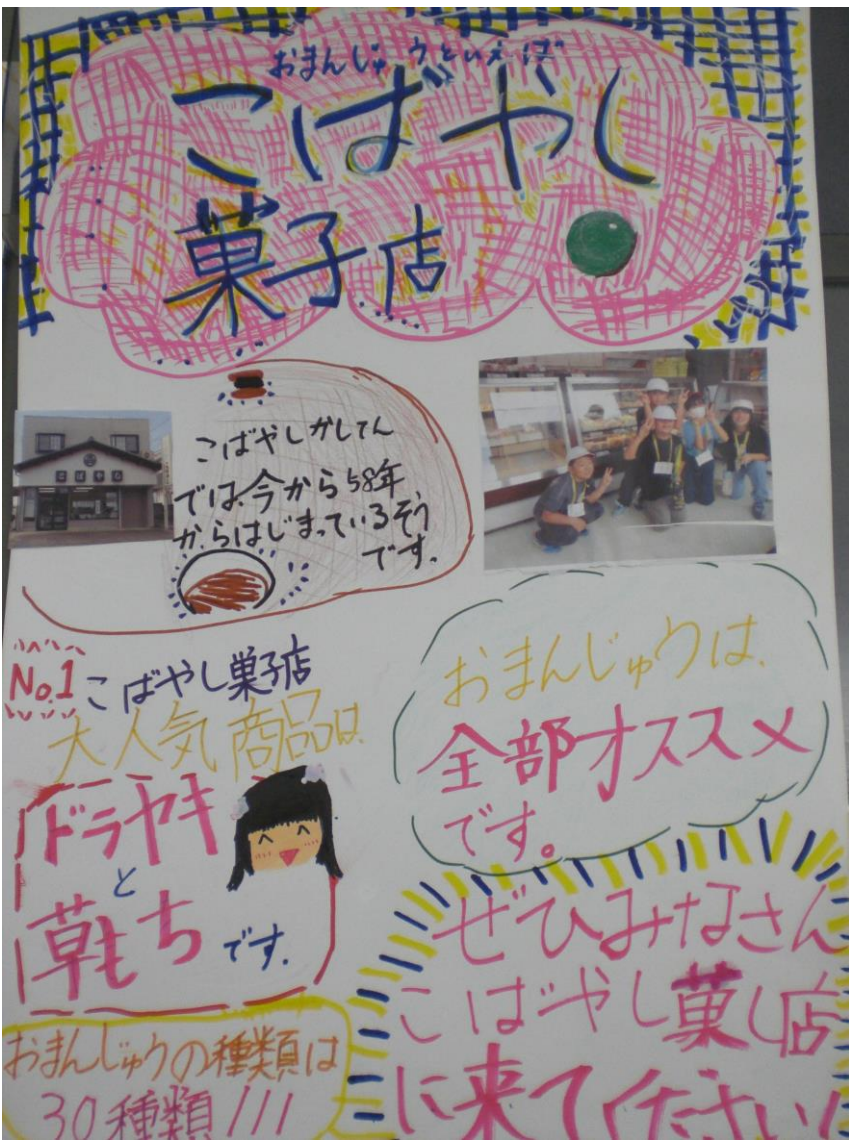 おまんじゅうといえば
こばやし
菓子店
こばやし
こばやしかしてん
では、今から58年
からはじまっているそう
です。
No.1 こばやし菓子店
大人気商品は
ドラヤキ
と
草もち です。
おまんじゅうは、
全部オススメ
です。
おまんじゅうの種類は
30種類!!!
ぜひみなさん
こばやし菓し店
に来てください!